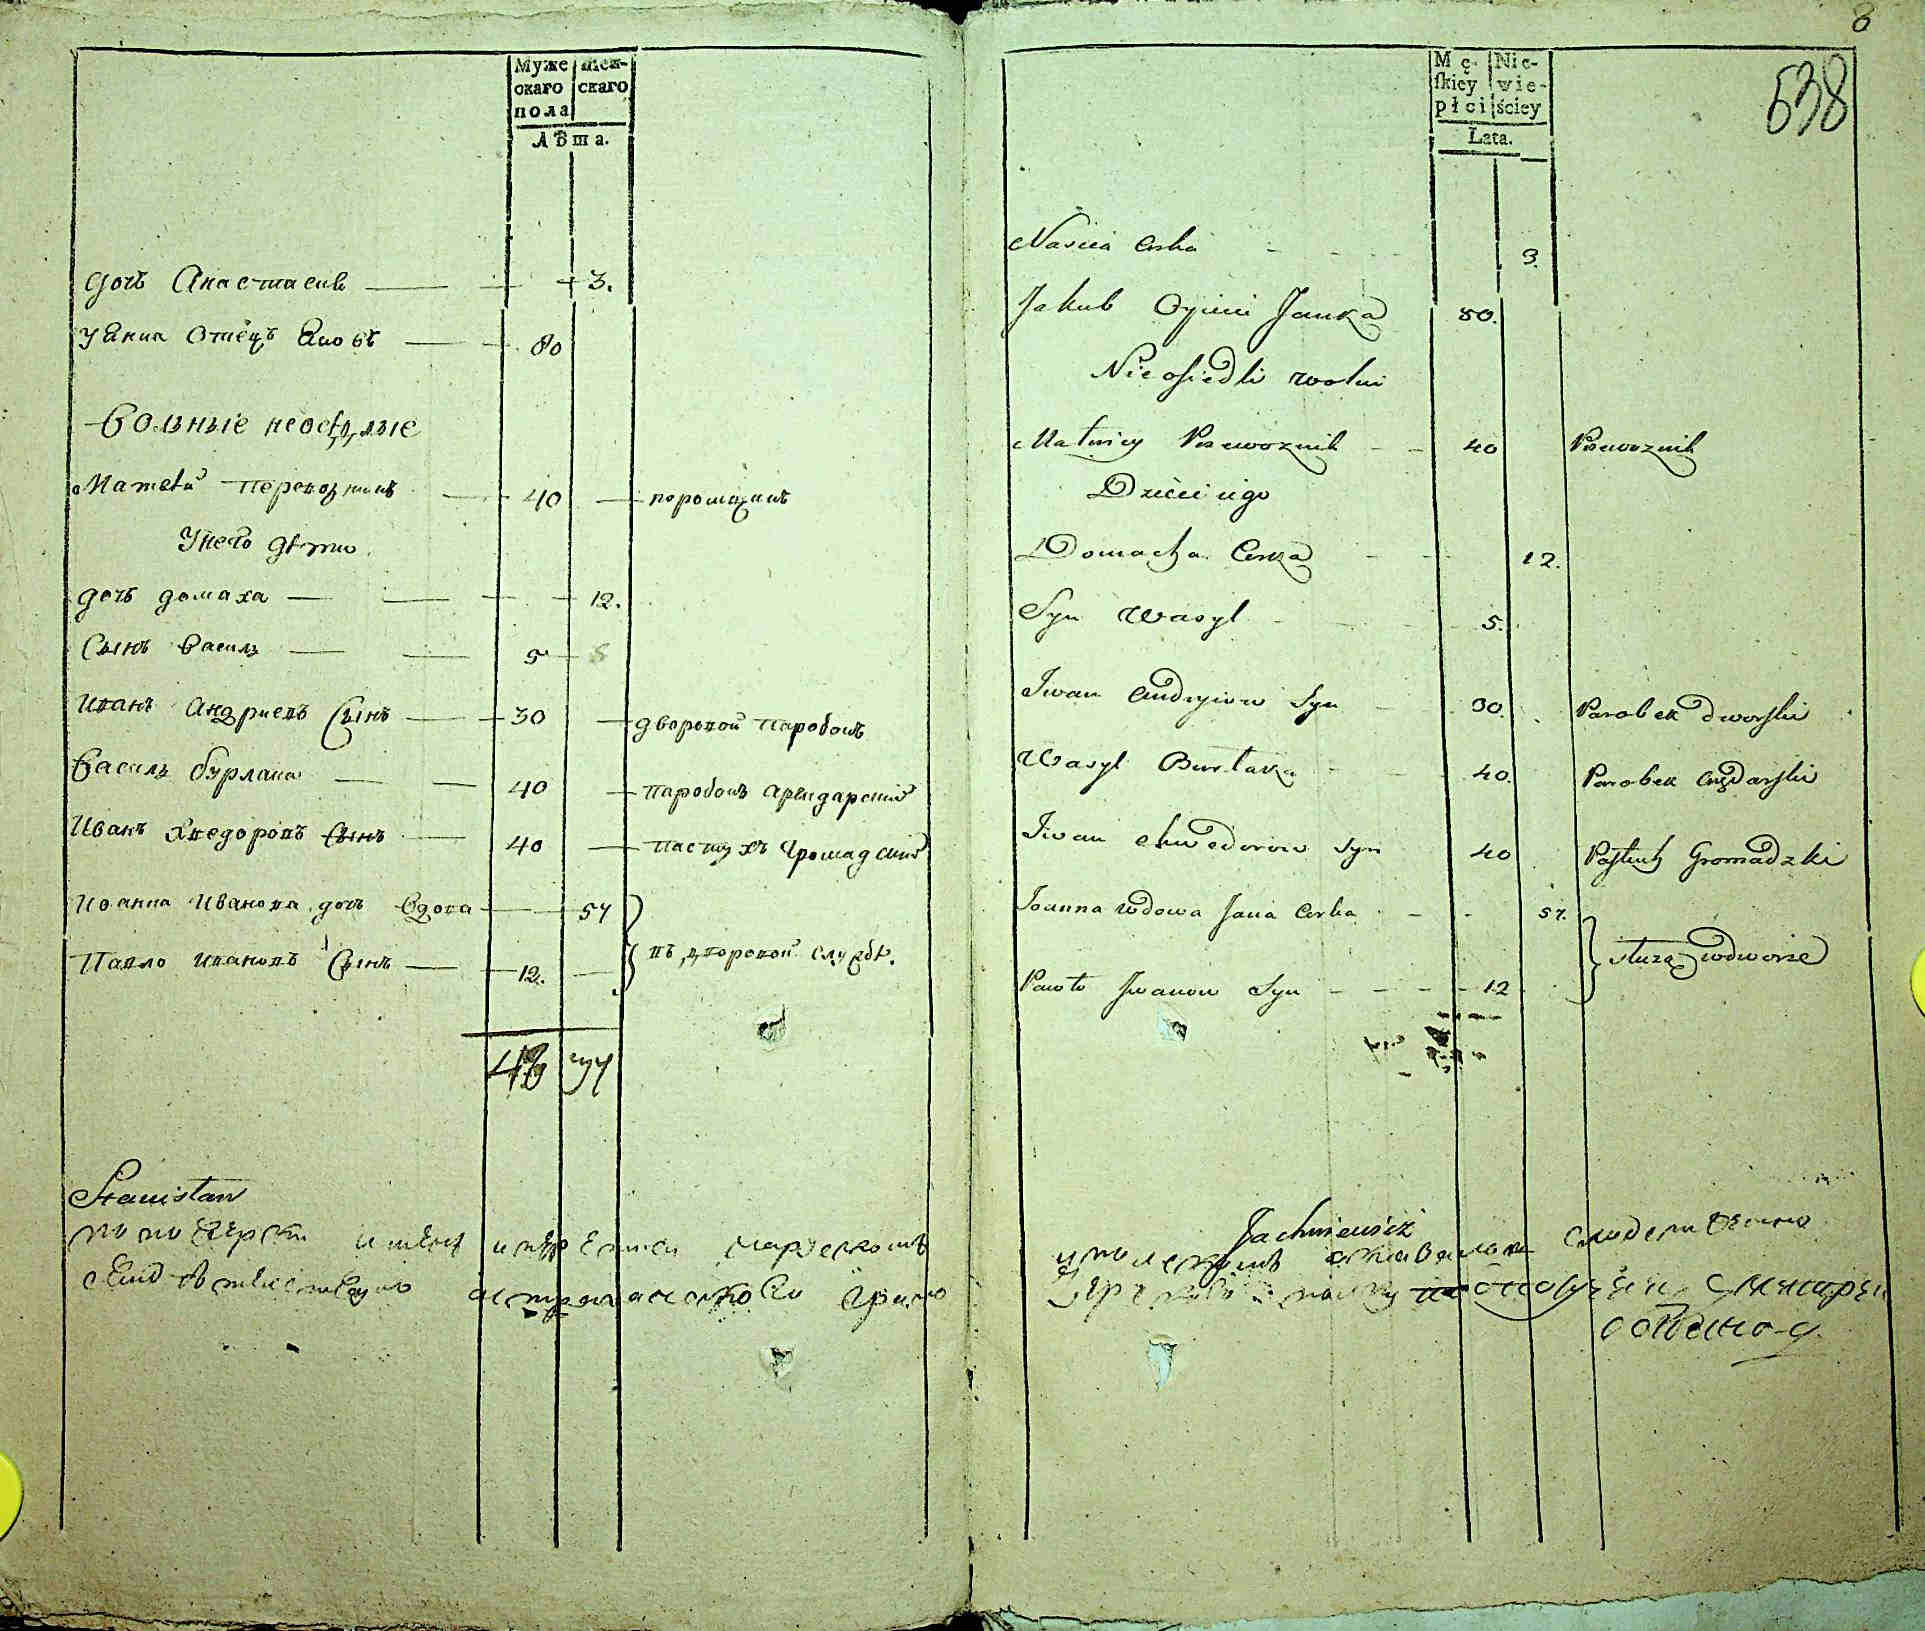 Муже скаго пола
Жен- скаго
Лѣта.
дочь Анастасия 3.
У Янка Отецъ Яковъ 80
Вольные неосѣдлые
Матвей Перевозникъ 40 поромщикъ
У него дѣти
дочь домаха 12.
Сынъ Василь 5
Иванъ Андриевъ Сынъ 30 дворовой Паробокъ
Василь бурлака 40 Паробокъ Арендарский
Иванъ Хведоровъ Сынъ 40 Пастухъ Громадский
Иоанна Иванова дочь Вдова 57
Павло Ивановъ Сынъ 12. въ дворовой службѣ.
Stanisław
8
538
Mę- skiey płci
Nie- wie- ściey
Lata.
Nascia Corka 3.
Jakub Oyciec Janka 80.
Nie osiedli wolni
Matwiey Przewoznik 40 Przewoznik
Dzieci iego
Domacha Corka 12.
Syn Wasyl 5.
Iwan Andryiow Syn 30. Parobek dworski
Wasyl Burłaka 40. Parobek Arędarski
Iwan Chwedorow Syn 40 Pastuch Gromadzki
Joanna wdowa Jana Corka 57.
Pawło Iwanow Syn 12 służą w dworze
Jachniewicz